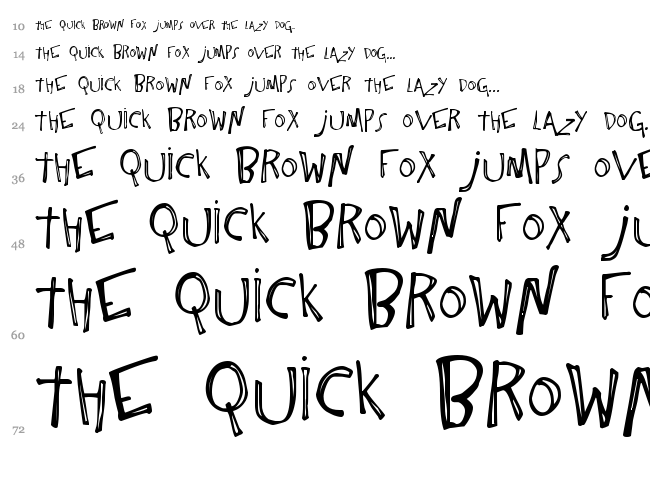 10 tHE QUiCK BROWN FOX jUMPS OVER tHE LAZY DOG.
14 tHE QUiCK BROWN FOX jUMPS OVER tHE LAZY DOG...
18 tHE QUiCK BROWN FOX jUMPS OVER tHE LAZY DOG...
24 tHE QUiCK BROWN FOX jUMPS OVER tHE LAZY DOG.
36 tHE QUiCK BROWN FOX jUMPS OVE
48 tHE QUiCK BROWN FOX jU
60 tHE QUiCK BROWN FO
72 tHE QUiCK BROWN